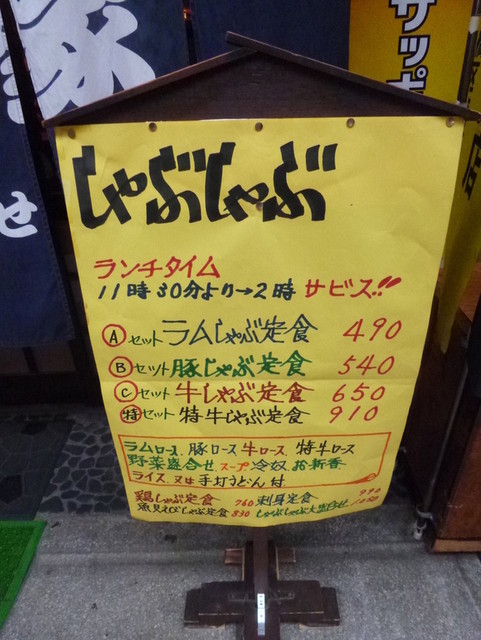 サッポ
せ
しゃぶしゃぶ
ランチタイム
11時30分より→2時 サービス!!
Aセット ラムしゃぶ定食 490
Bセット 豚しゃぶ定食 540
Cセット 牛しゃぶ定食 650
特セット 特牛しゃぶ定食 910
ラムロース、豚ロース 牛ロース、特牛ロース
野菜盛合せ スープ 冷奴 お新香
ライス 又は 手打うどん 付
鶏しゃぶ定食 760 刺身定食 990
魚貝えびしゃぶ定食 830 しゃぶしゃぶ大盛合せ